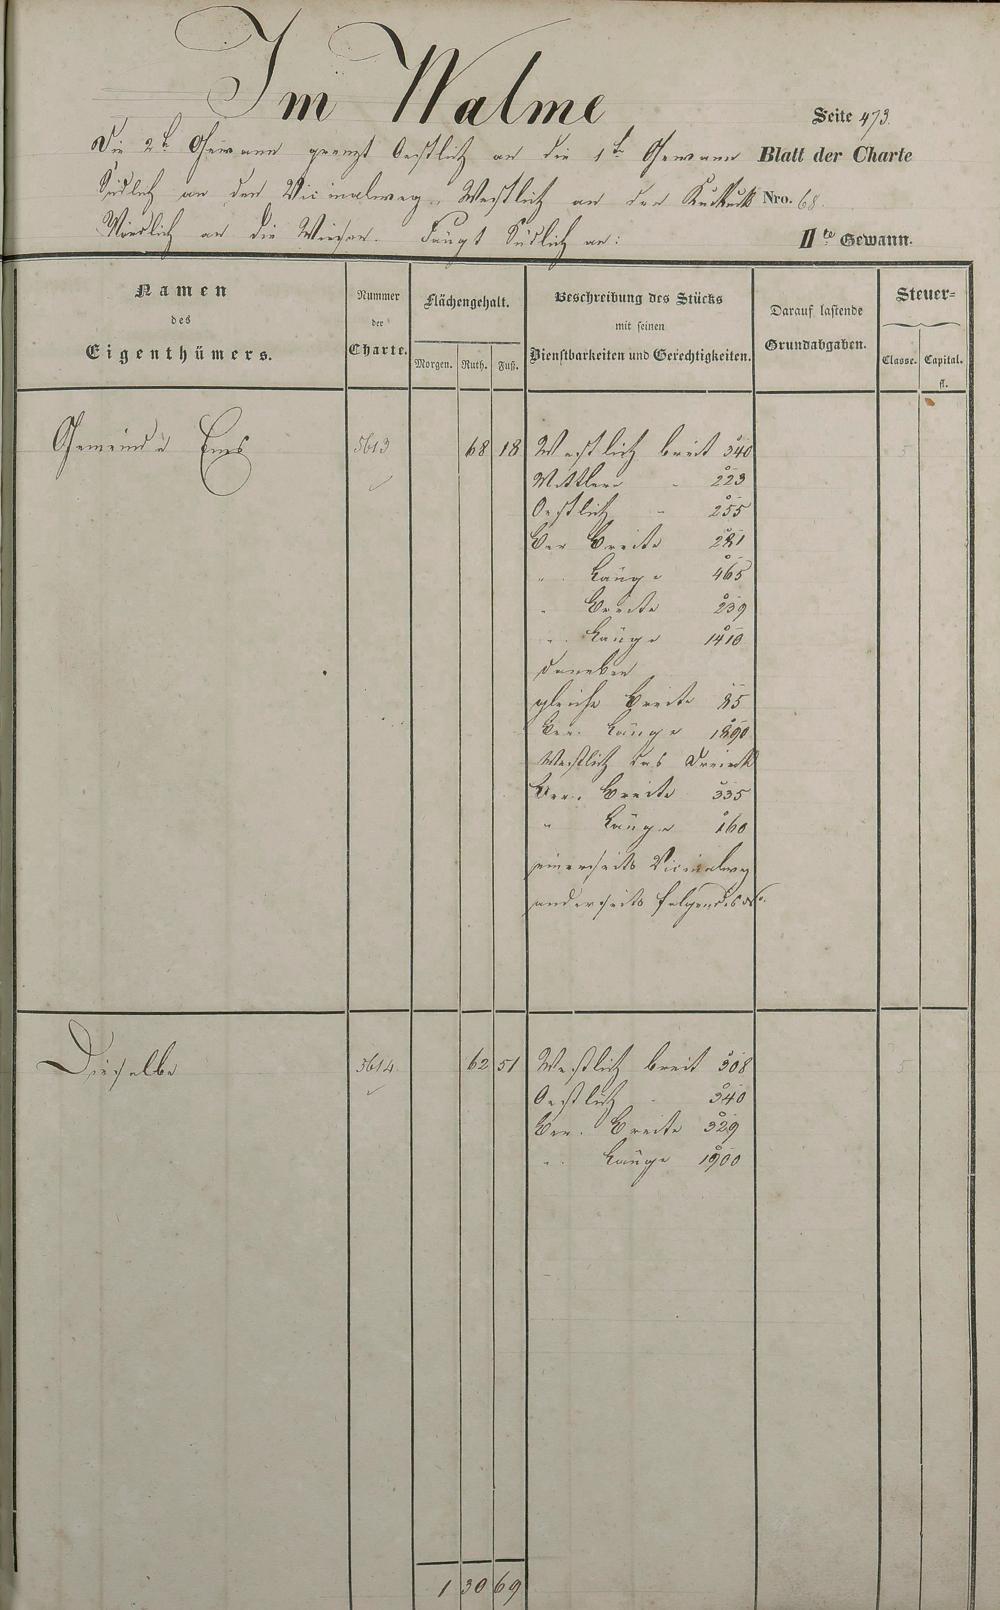 Im Walme
Seite 473.
Die 2te Gewann grenzt Oestlich an die 1te Gewann
Blatt der Charte
Südlich an den Vicinalweg, Westlich an den Kuckuck
Nro. 68.
Nördlich an die Wiesen. Fängt Südlich an:
IIte Gewann.
Namen
des
Eigenthümers.
Nummer
der
Charte.
Flächengehalt.
Morgen. Ruth. Fuß.
Beschreibung des Stücks
mit seinen
Dienstbarkeiten und Gerechtigkeiten.
Darauf lastende
Grundabgaben.
Steuer=
Classe. Capital.
fl.
Gemeinde Ems 5613 68 18 Westlich breit 340 5
Mittlere " 223
Oestlich " 255
Ver Breite 281
" Länge 465
" Breite 239
" Länge 1410
daneben
gleiche Breite 85
Ver. Länge 1890
Westlich das Dreieck
Ver. Breite 335
" Länge 160
einerseits Vicinalweg
anderseits folgendes
Dieselbe 5614 62 51 Westlich breit 308 5
Oestlich " 340
Ver. Breite 329
" Länge 1900
1 30 69